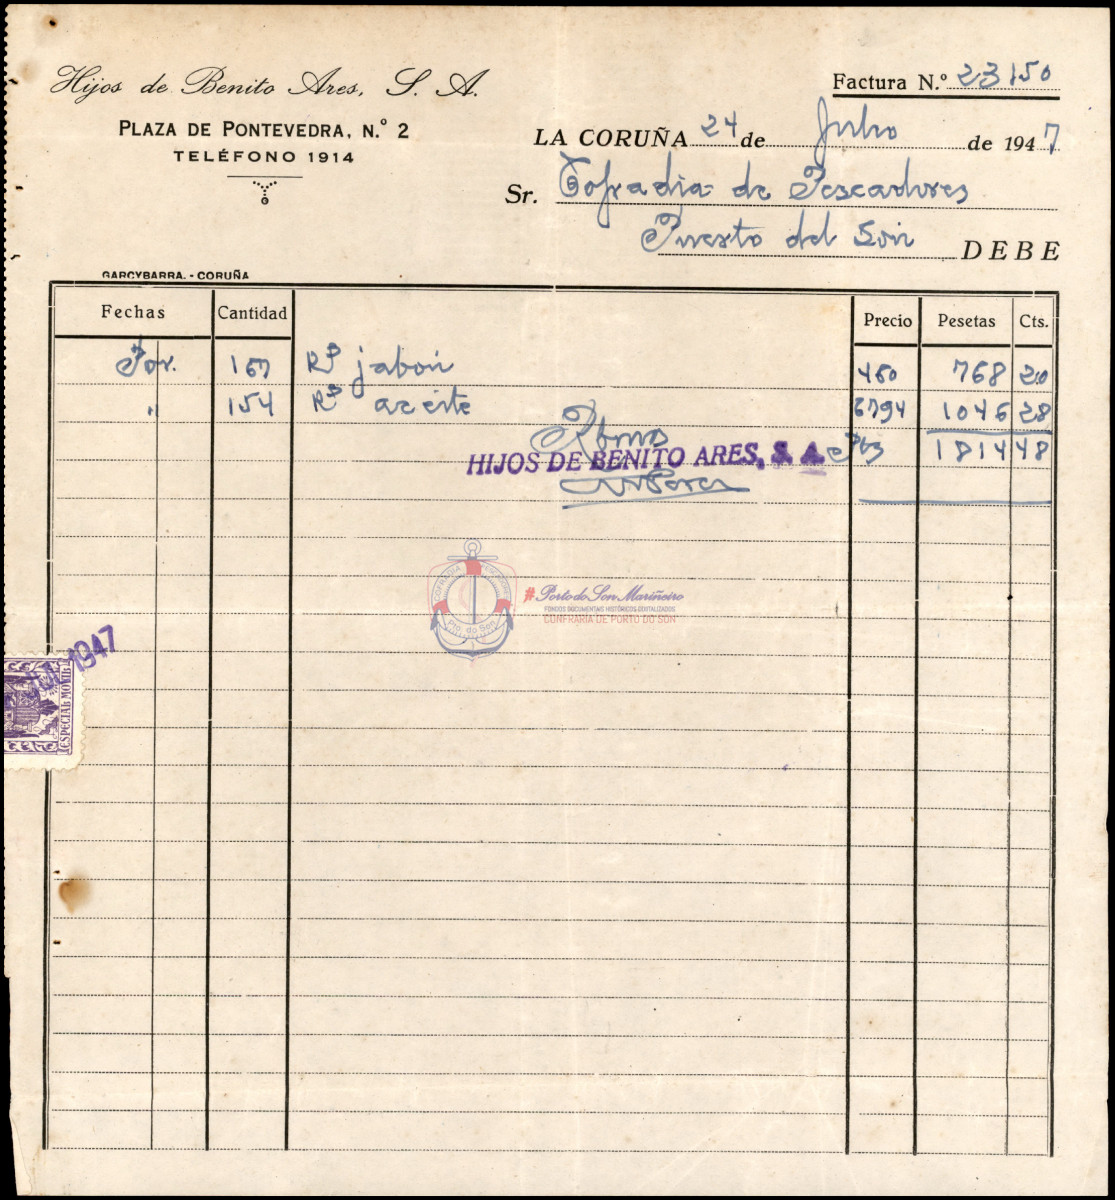 Hijos de Benito Ares, S. A.
PLAZA DE PONTEVEDRA, N.º 2
TELÉFONO 1914
Factura N.º 23150
LA CORUÑA 24 de Julio de 1947
Sr. Cofradia de Pescadores
Puerto del Son DEBE
GARCYBARRA. - CORUÑA
Fechas Cantidad Precio Pesetas Cts.
Por. 167 Rs jabón 460 768 20
" 154 Rs aceite 6794 1046 28
Ptas 1814 48
HIJOS DE BENITO ARES, S. A.
COFRADIA PESCADORES
Pto. do Son
#Porto do Son Mariñeiro
FONDOS DOCUMENTAIS HISTÓRICOS DIXITALIZADOS
CONFRARÍA DE PORTO DO SON
JUL 1947
ESPECIAL MOVIL